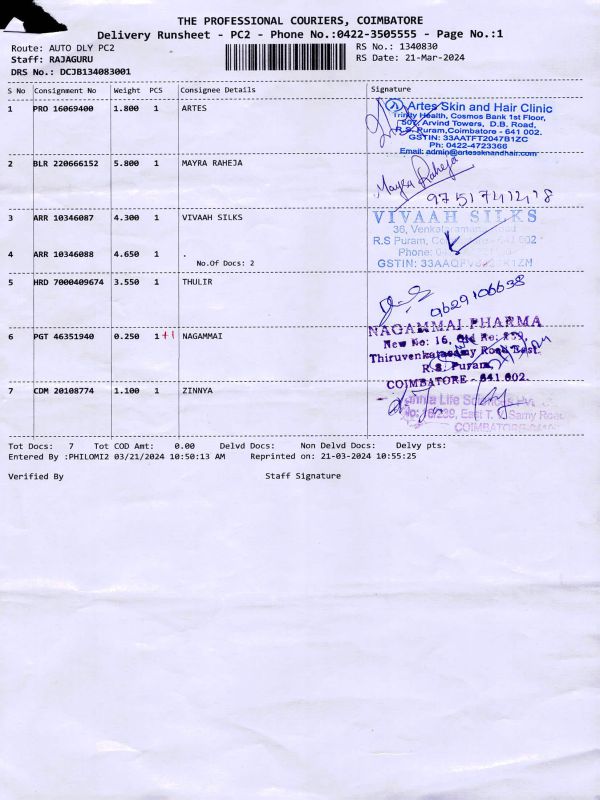 THE PROFESSIONAL COURIERS, COIMBATORE
Delivery Runsheet - PC2 - Phone No.:0422-3505555 - Page No.:1
Route: AUTO DLY PC2
RS No.: 1340830
Staff: RAJAGURU
RS Date: 21-Mar-2024
DRS No.: DCJB134083001
S No Consignment No Weight PCS Consignee Details Signature
1 PRO 16069400 1.800 1 ARTES
Artes Skin and Hair Clinic
Trinity Health, Cosmos Bank 1st Floor,
507, Arvind Towers, D.B. Road,
R.S. Puram, Coimbatore - 641 002.
GSTIN: 33AATFT2047B1ZC
Ph: 0422-4723366
Email: admin@artesskinandhair.com
2 BLR 220666152 5.800 1 MAYRA RAHEJA
Mayra Raheja
3 ARR 10346087 4.300 1 VIVAAH SILKS
VIVAAH SILKS
R.S Puram,
Phone:
GSTIN:
4 ARR 10346088 4.650 1 .
No.Of Docs: 2
5 HRD 7000409674 3.550 1 THULIR
9629106638
6 PGT 46351940 0.250 1 +1 NAGAMMAI
NAGAMMAI PHARMA
New No: 16, Old No:
Thiruvenkatasamy Road East
R.S. Puram,
COIMBATORE - 641 002.
7 CDM 20108774 1.100 1 ZINNYA
Life
Samy Road
COIMBATORE
Tot Docs: 7 Tot COD Amt: 0.00 Delvd Docs: Non Delvd Docs: Delvy pts:
Entered By :PHILOMI2 03/21/2024 10:50:13 AM Reprinted on: 21-03-2024 10:55:25
Verified By Staff Signature